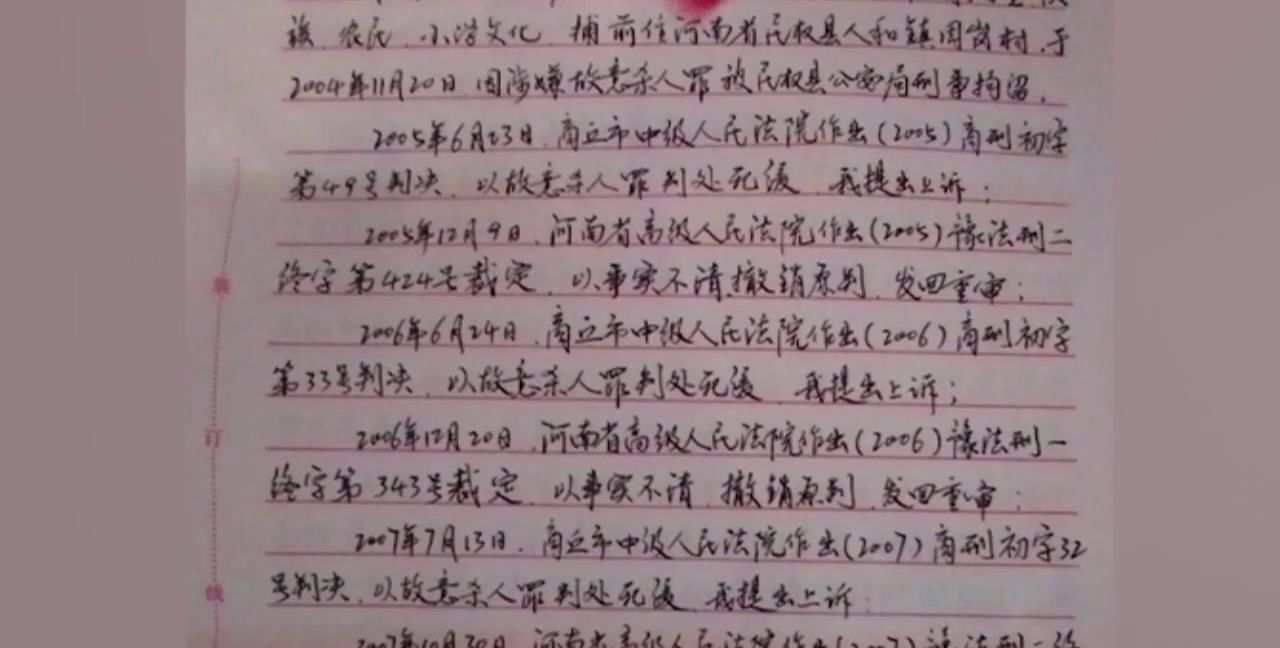 族、农民、小学文化、捕前住河南省民权县人和镇周岗村,于
2004年11月20日因涉嫌故意杀人罪被民权县公安局刑事拘留。
2005年6月23日,商丘市中级人民法院作出(2005)商刑初字
第49号判决,以故意杀人罪判处死缓,我提出上诉;
2005年12月9日,河南省高级人民法院作出(2005)豫法刑二
终字第424号裁定,以事实不清,撤销原判,发回重审;
2006年6月24日,商丘市中级人民法院作出(2006)商刑初字
第33号判决,以故意杀人罪判处死缓,我提出上诉;
2006年12月20日,河南省高级人民法院作出(2006)豫法刑一
终字第343号裁定,以事实不清,撤销原判,发回重审;
2007年7月13日,商丘市中级人民法院作出(2007)商刑初字32
号判决,以故意杀人罪判处死缓,我提出上诉;
2007年10月30日,河南省高级人民法院作出(2007)豫法刑二终
装
订
线